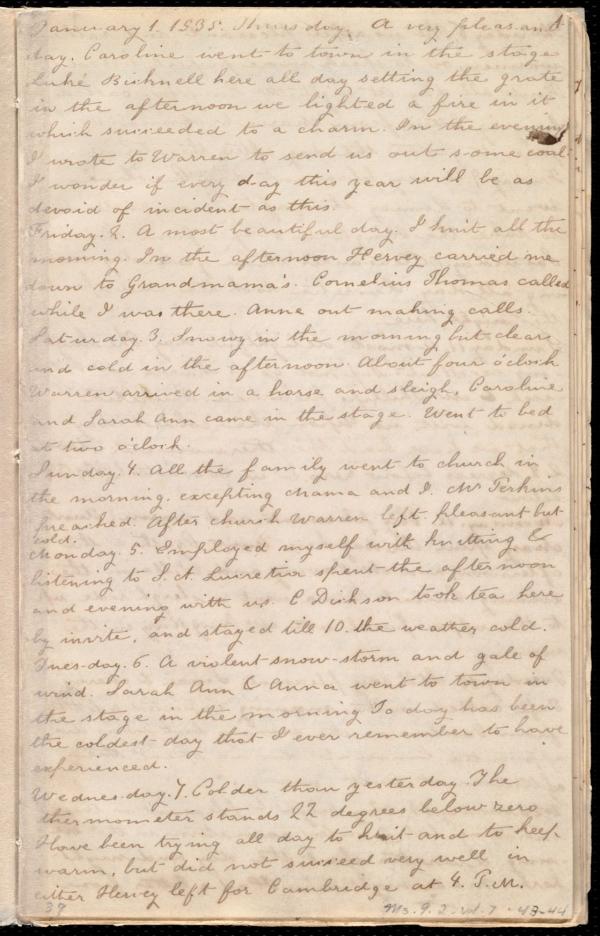 January 1. 1835. Thursday. A very pleasant 1
day. Caroline went to town in the stage
Luke Bicknell here all day setting the grate
in the afternoon we lighted a fire in it
which succeeded to a charm. In the evening
I wrote to Warren to send us out some coal.
I wonder if every day this year will be as
devoid of incident as this.
Friday. 2. A most beautiful day. I knit all the
morning. In the afternoon Hervey carried me
down to Grandmama's. Cornelius Thomas called
while I was there. Anne out making calls.
Saturday. 3. Snowy in the morning but clear
and cold in the afternoon. About four o'clock
Warren arrived in a horse and sleigh. Caroline
and Sarah Ann came in the stage. Went to bed
at two o'clock.
Sunday. 4. All the family went to church in
the morning. excepting Mama and I. Mr Perkins
preached. After church Warren left. Pleasant but
cold.
Monday. 5. Employed myself with knitting &
listening to S. A. Lucretia spent the afternoon
and evening with us. C Dickson took tea here
by invite, and stayed till 10. the weather cold.
Tues-day. 6. A violent snow-storm and gale of
wind. Sarah Ann & Anna went to town in
the stage in the morning To day has been
the coldest day that I ever remember to have
experienced.
Wednesday. 7. Colder than yesterday The
thermometer stands 22 degrees below zero
Have been trying all day to knit and to keep
warm, but did not succeed very well in
either Hervey left for Cambridge at 4. P.M.
39 Ms. 9. 2. vol. 7 . 43-44